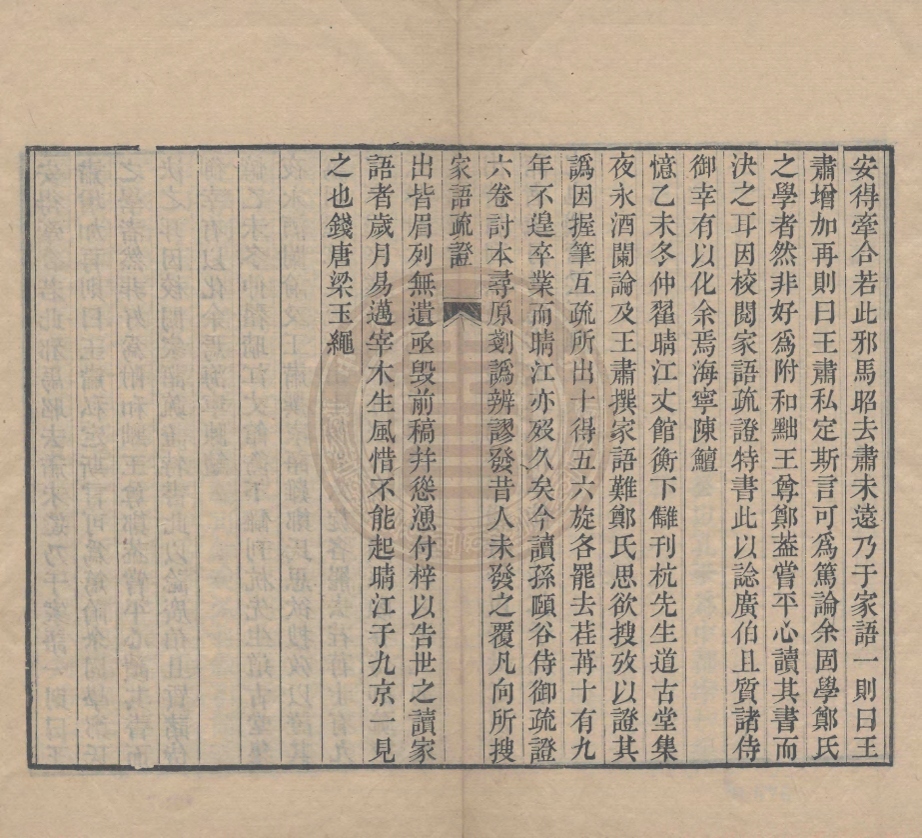 安得牽合若此邪馬昭去肅未遠乃于家語一則曰王
肅增加再則曰王肅私定斯言可爲篤論余固學鄭氏
之學者然非好爲附和黜王尊鄭葢嘗平心讀其書而
決之耳因校閱家語疏證特書此以諗廣伯且質諸侍
御幸有以化余焉海寧陳鱣
憶乙未冬仲翟晴江丈館衡下讎刊杭先生道古堂集
夜永酒闌論及王肅撰家語難鄭氏思欲搜攷以證其
譌因握筆互疏所出十得五六旋各罷去荏苒十有九
年不遑卒業而晴江亦歿久矣今讀孫頤谷侍御疏證
六卷討本尋原剗譌辨謬發昔人未發之覆凡向所搜
家語疏證
出皆眉列無遺亟毀前稿幷慫漁付梓以告世之讀家
語者歲月易邁宰木生風惜不能起晴江于九京一見
之也錢唐梁玉繩